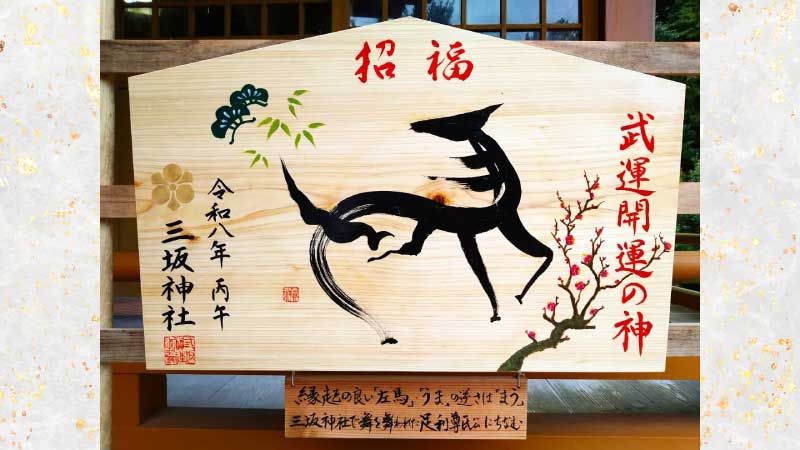 招福
武運開運の神
令和八年 丙午
三坂神社
縁起の良い「左馬」、「うま」の逆さは「まう」
三坂神社で舞を舞われた足利尊氏公にちなむ